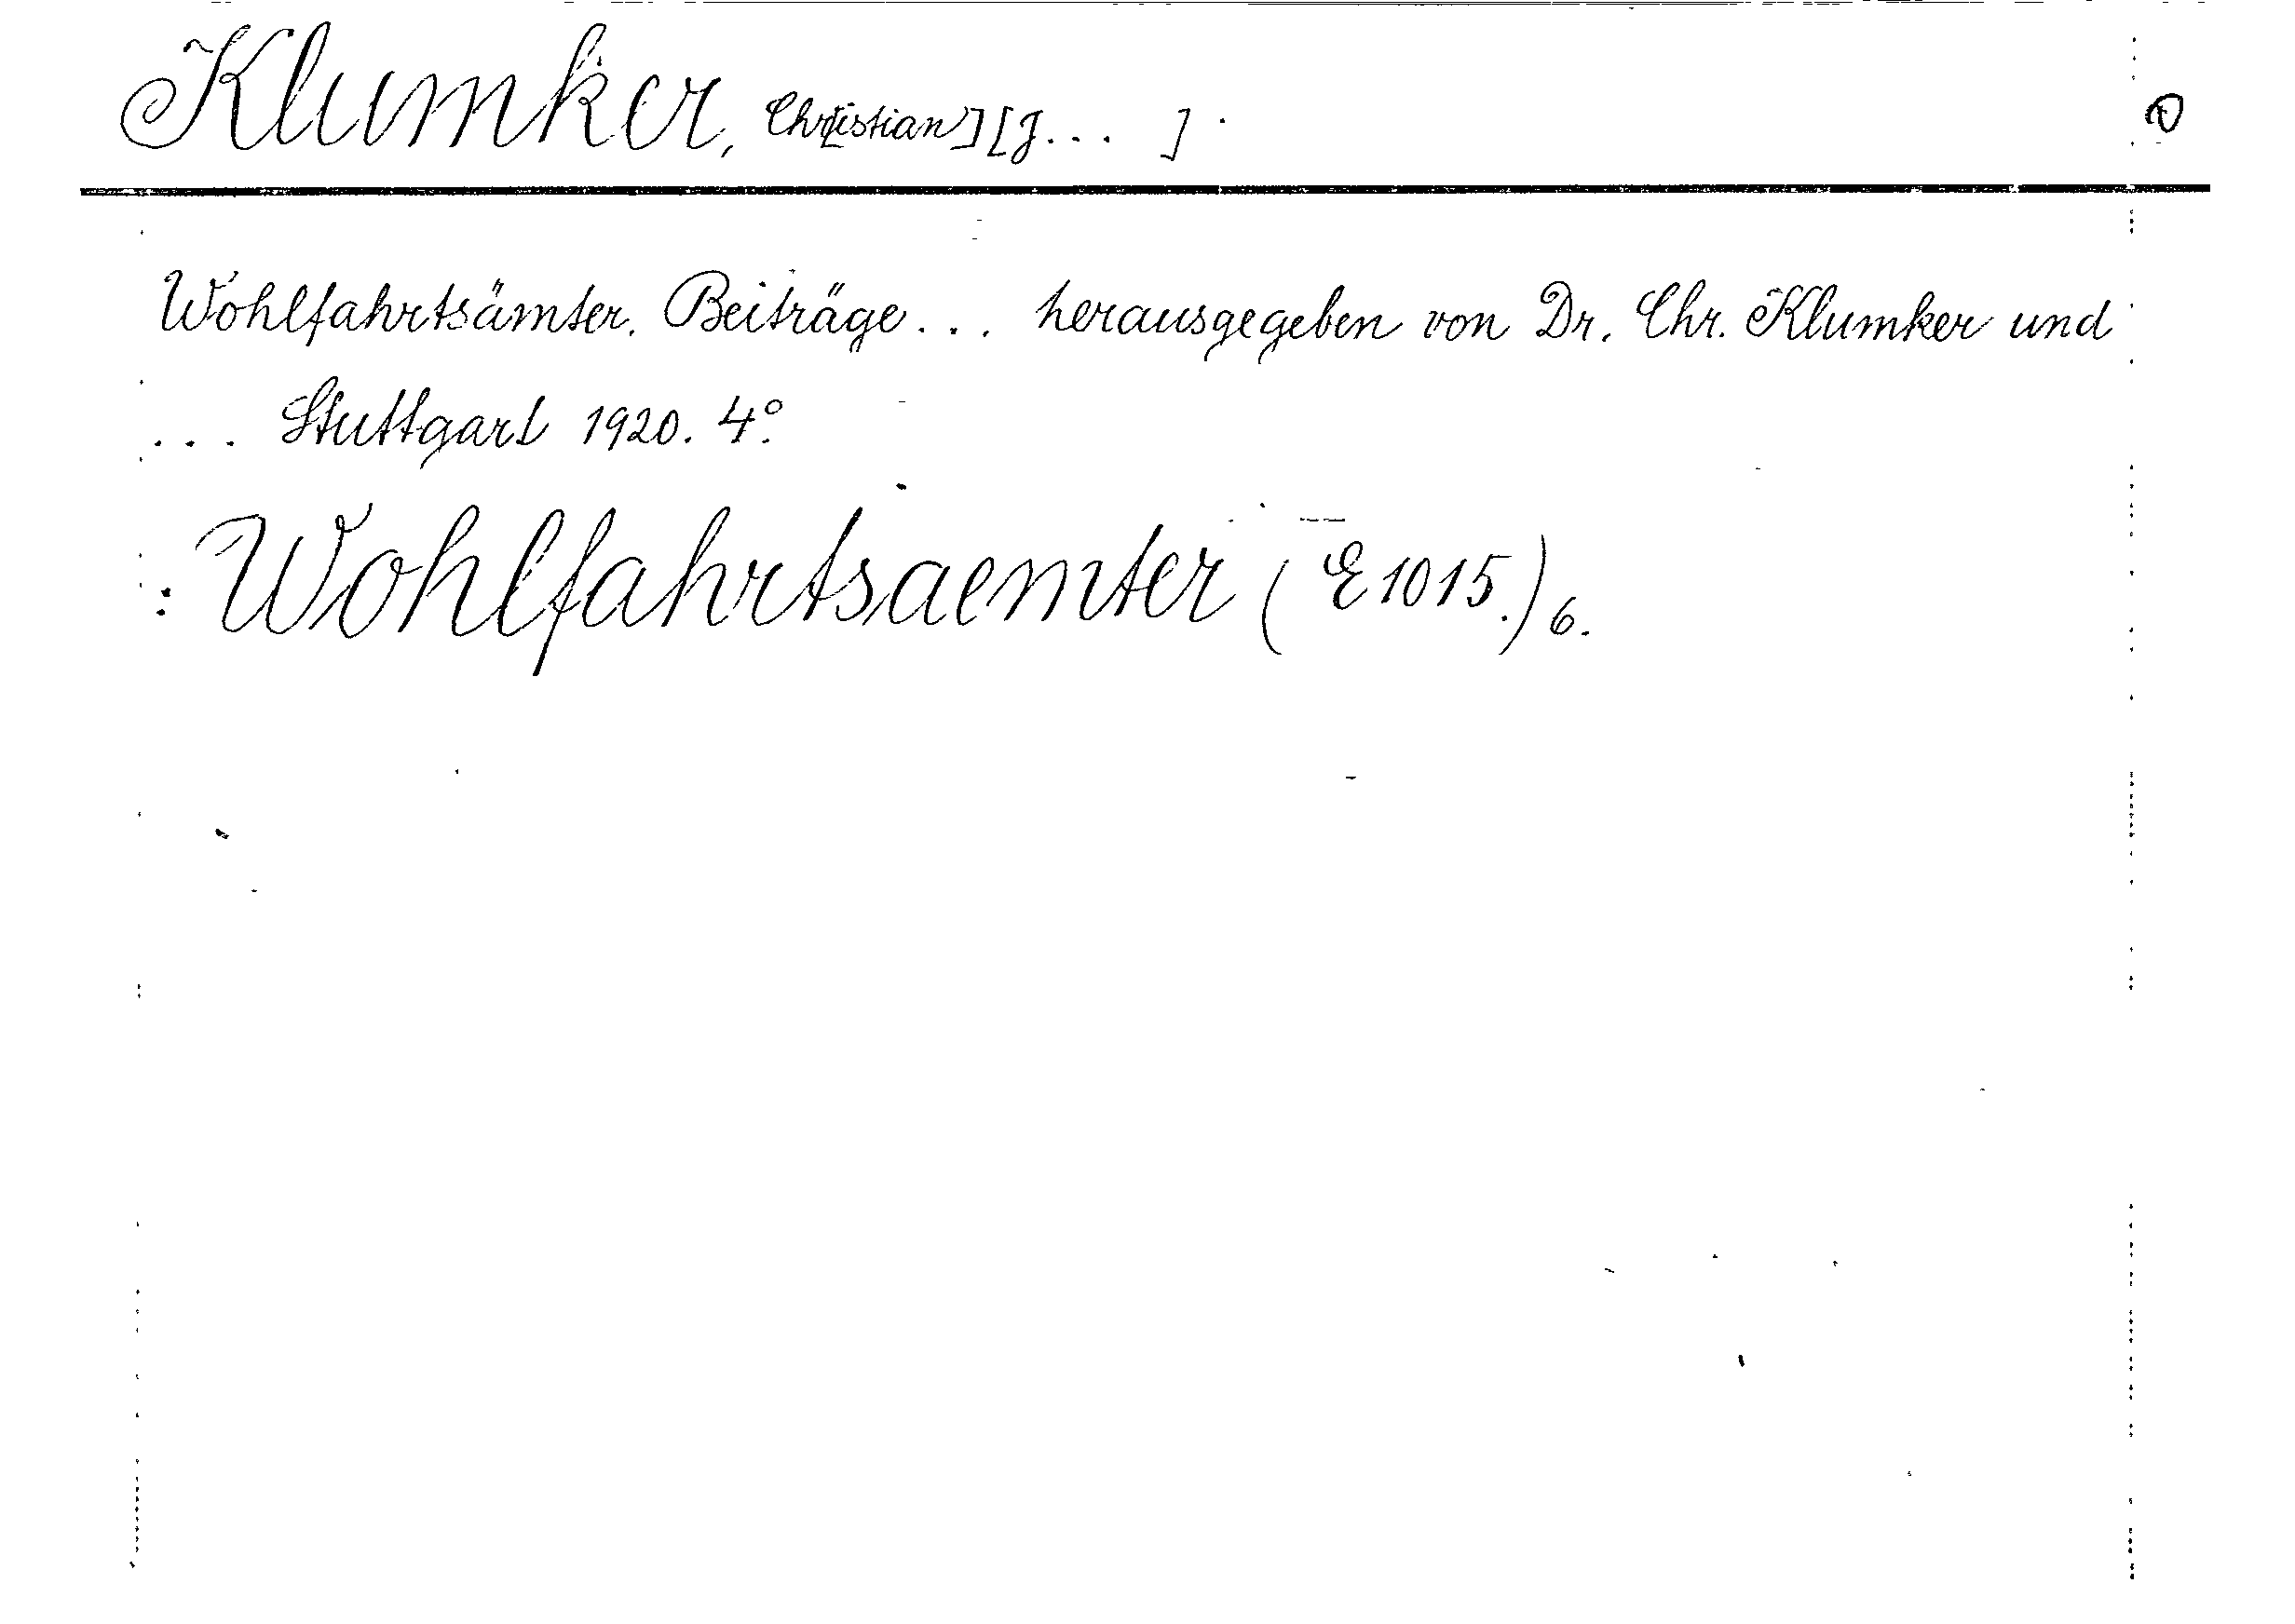 Klumker, Chr[istian] [J... ].
Wohlfahrtsämter. Beiträge... herausgegeben von Dr. Chr. Klumker und
... Stuttgart 1920. 4°.
: Wohlfahrtsaemter (E 1015.) 6.